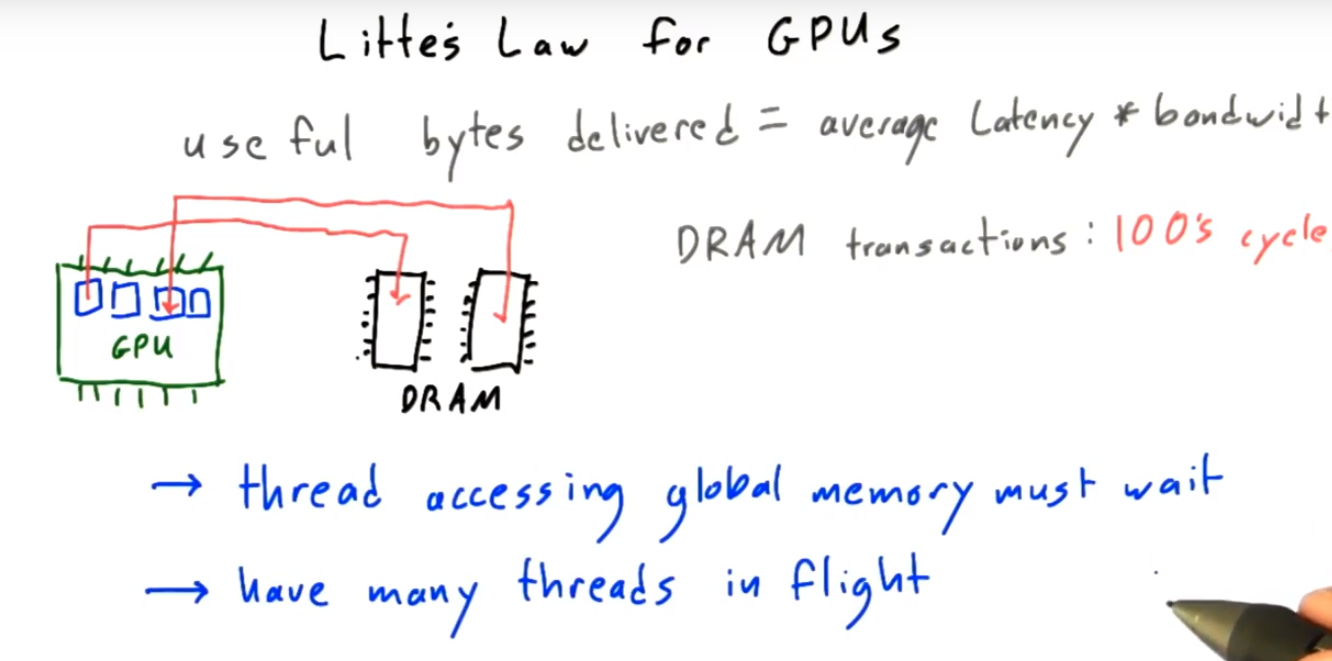 Little's Law for GPUs
useful bytes delivered = average latency * bandwidt
DRAM transactions: 100's cycle
GPU
DRAM
→ thread accessing global memory must wait
→ have many threads in flight